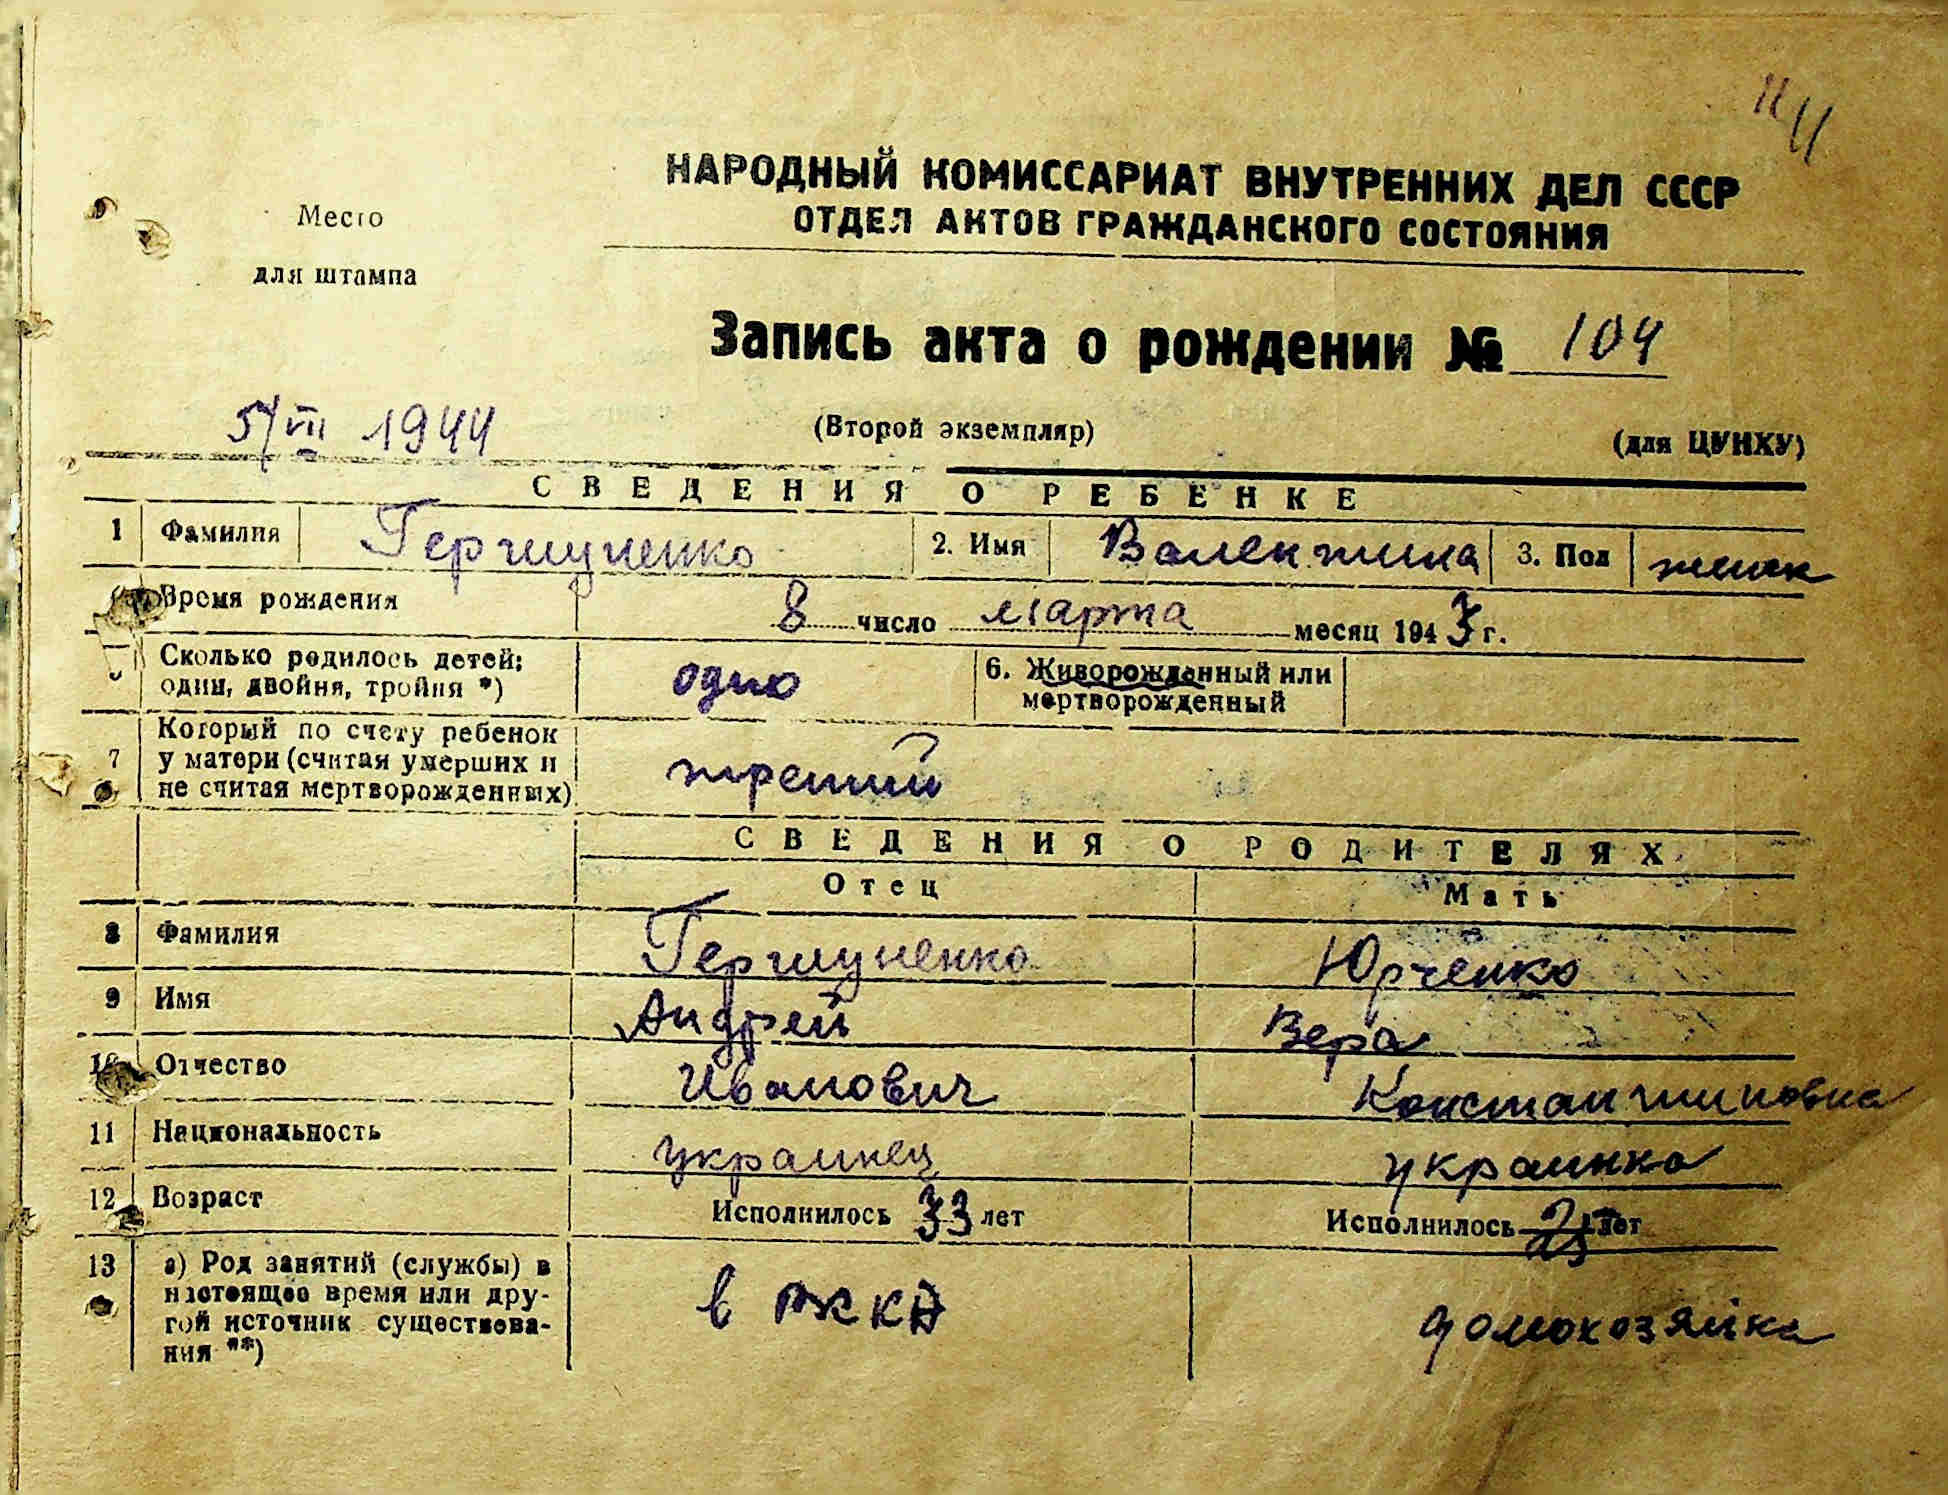 11 11
НАРОДНЫЙ КОМИССАРИАТ ВНУТРЕННИХ ДЕЛ СССР
ОТДЕЛ АКТОВ ГРАЖДАНСКОГО СОСТОЯНИЯ
Место
для штампа
Запись акта о рождении № 104
5/VII 1944
(Второй экземпляр)
(для ЦУНХУ)
СВЕДЕНИЯ О РЕБЕНКЕ
1 Фамилия Гершуненко 2. Имя Валентина 3. Пол женск
Время рождения 8 число марта месяц 1943 г.
Сколько родилось детей:
один, двойня, тройня *) одно
6. Живорожденный или
мертворожденный
Который по счету ребенок
7 у матери (считая умерших и
не считая мертворожденных) третий
СВЕДЕНИЯ О РОДИТЕЛЯХ
Отец Мать
8 Фамилия Гершуненко Юрченко
9 Имя Андрей Вера
10 Отчество Иванович Константиновна
11 Национальность украинец украинка
12 Возраст Исполнилось 33 лет Исполнилось 25 лет
13 а) Род занятий (службы) в
настоящее время или дру-
гой источник существова-
ния **)
в РККА домохозяйка